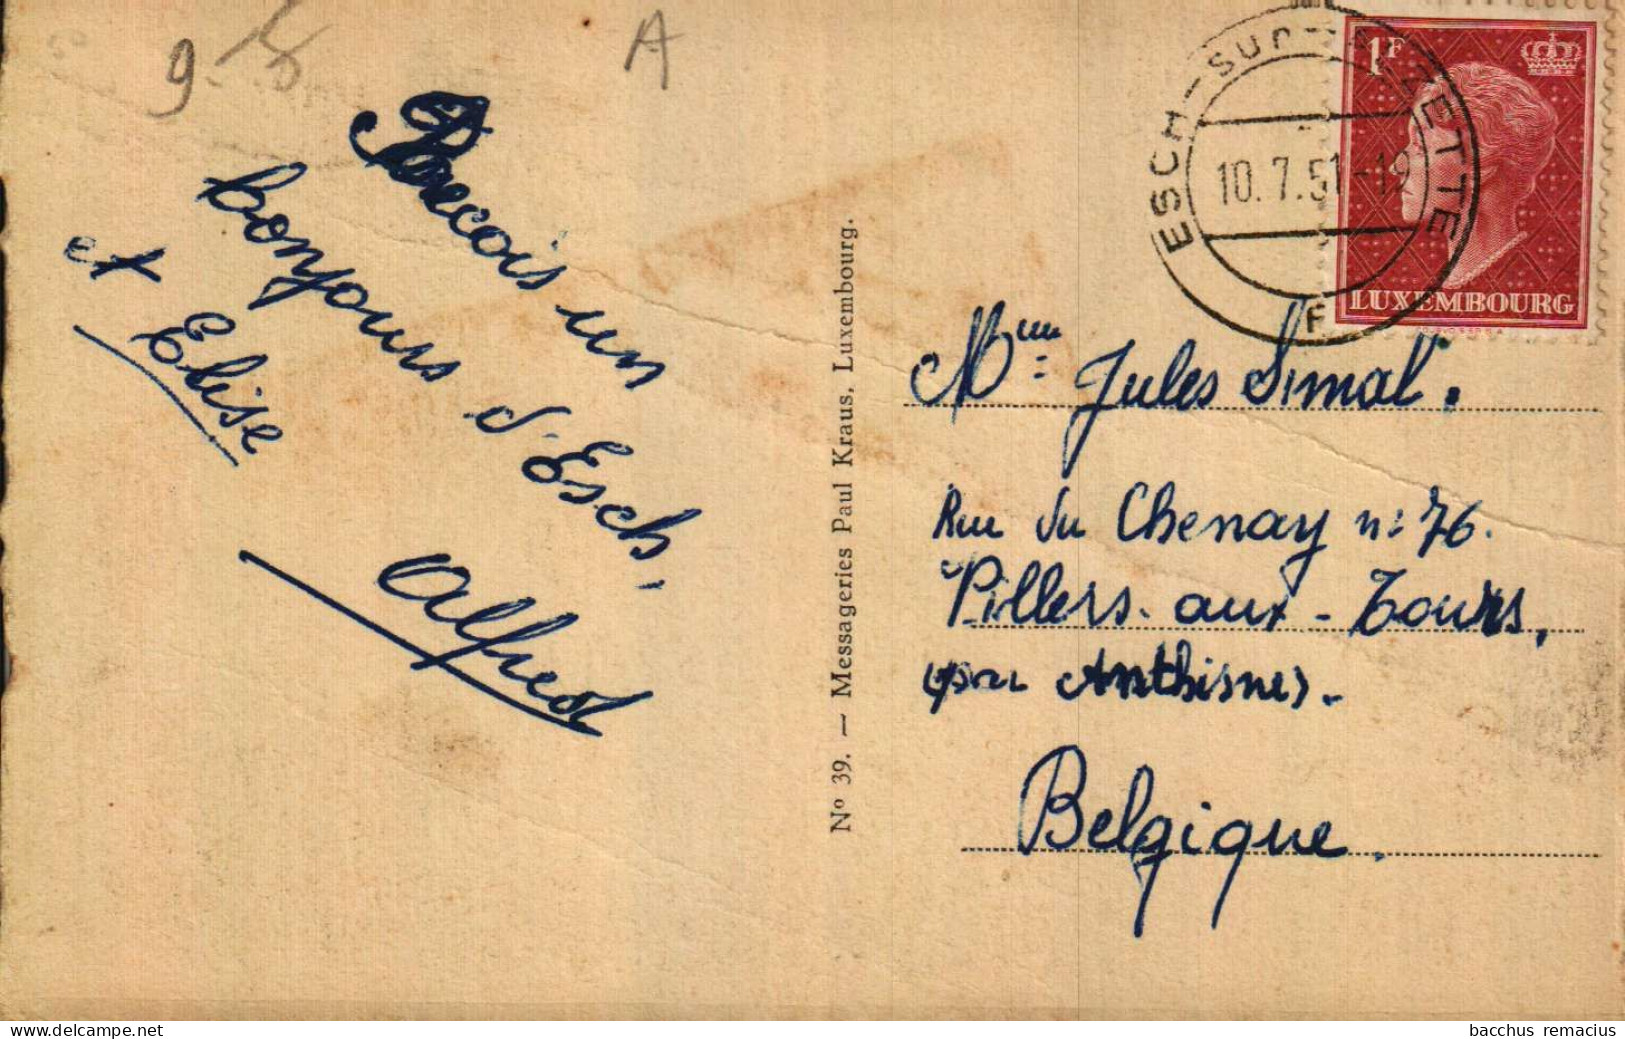 9
A
Recois un
bonjours d'Esch,
Alfred
et Elise
Nº 39. — Messageries Paul Kraus, Luxembourg.
ESCH-SUR-ALZETTE
10.7.51-19
F
1F
LUXEMBOURG
Mme: Jules Simal.
Rue du Chenay n: 76.
Villers-aux-Tours,
par Anthisnes.
Belgique.
bacchus remacius
www.delcampe.net